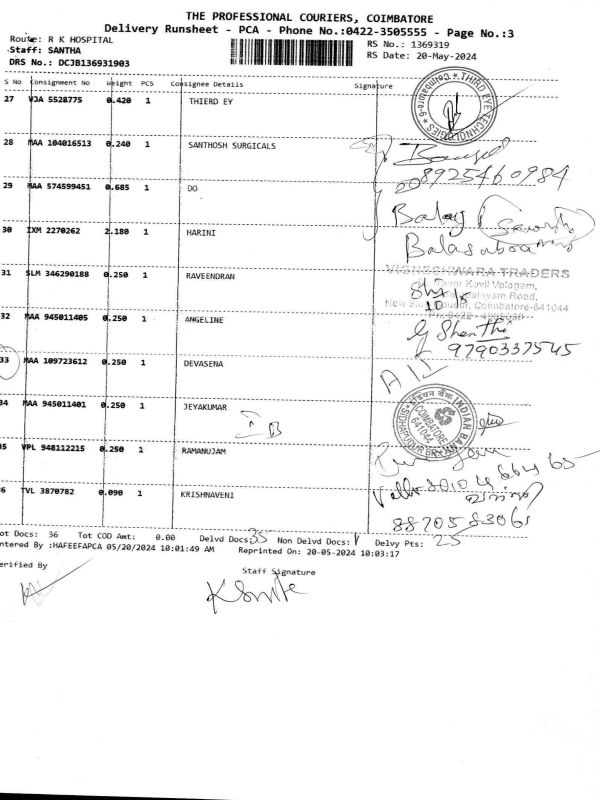 THE PROFESSIONAL COURIERS, COIMBATORE
Delivery Runsheet - PCA - Phone No.:0422-3505555 - Page No.:3
Route: R K HOSPITAL
Staff: SANTHA
DRS No.: DCJB136931903
RS No.: 1369319
RS Date: 20-May-2024
S No Consignment No Weight PCS Consignee Details Signature
27 VJA 5528775 0.420 1 THIERD EY
THIRD EYE TECHNOLOGIES * Coimbatore-6 *
28 MAA 104016513 0.240 1 SANTHOSH SURGICALS
8925460984
29 MAA 574599451 0.685 1 DO
Balaj
30 IXM 2270262 2.180 1 HARINI
31 SLM 346290188 0.250 1 RAVEENDRAN
VIGNESHWARA TRADERS
Coimbatore-641044
32 MAA 945011405 0.250 1 ANGELINE
Shanthi
9790337545
33 MAA 109723612 0.250 1 DEVASENA
34 MAA 945011401 0.250 1 JEYAKUMAR
IB
INDIAN BANK
COIMBATORE
641044
35 VPL 948112215 0.250 1 RAMANUJAM
36 TVL 3870782 0.090 1 KRISHNAVENI
8870583065
Tot Docs: 36 Tot COD Amt: 0.00 Delvd Docs: 35 Non Delvd Docs: 1 Delvy Pts: 25
Entered By :HAFEEFAPCA 05/20/2024 10:01:49 AM Reprinted On: 20-05-2024 10:03:17
Verified By
Staff Signature